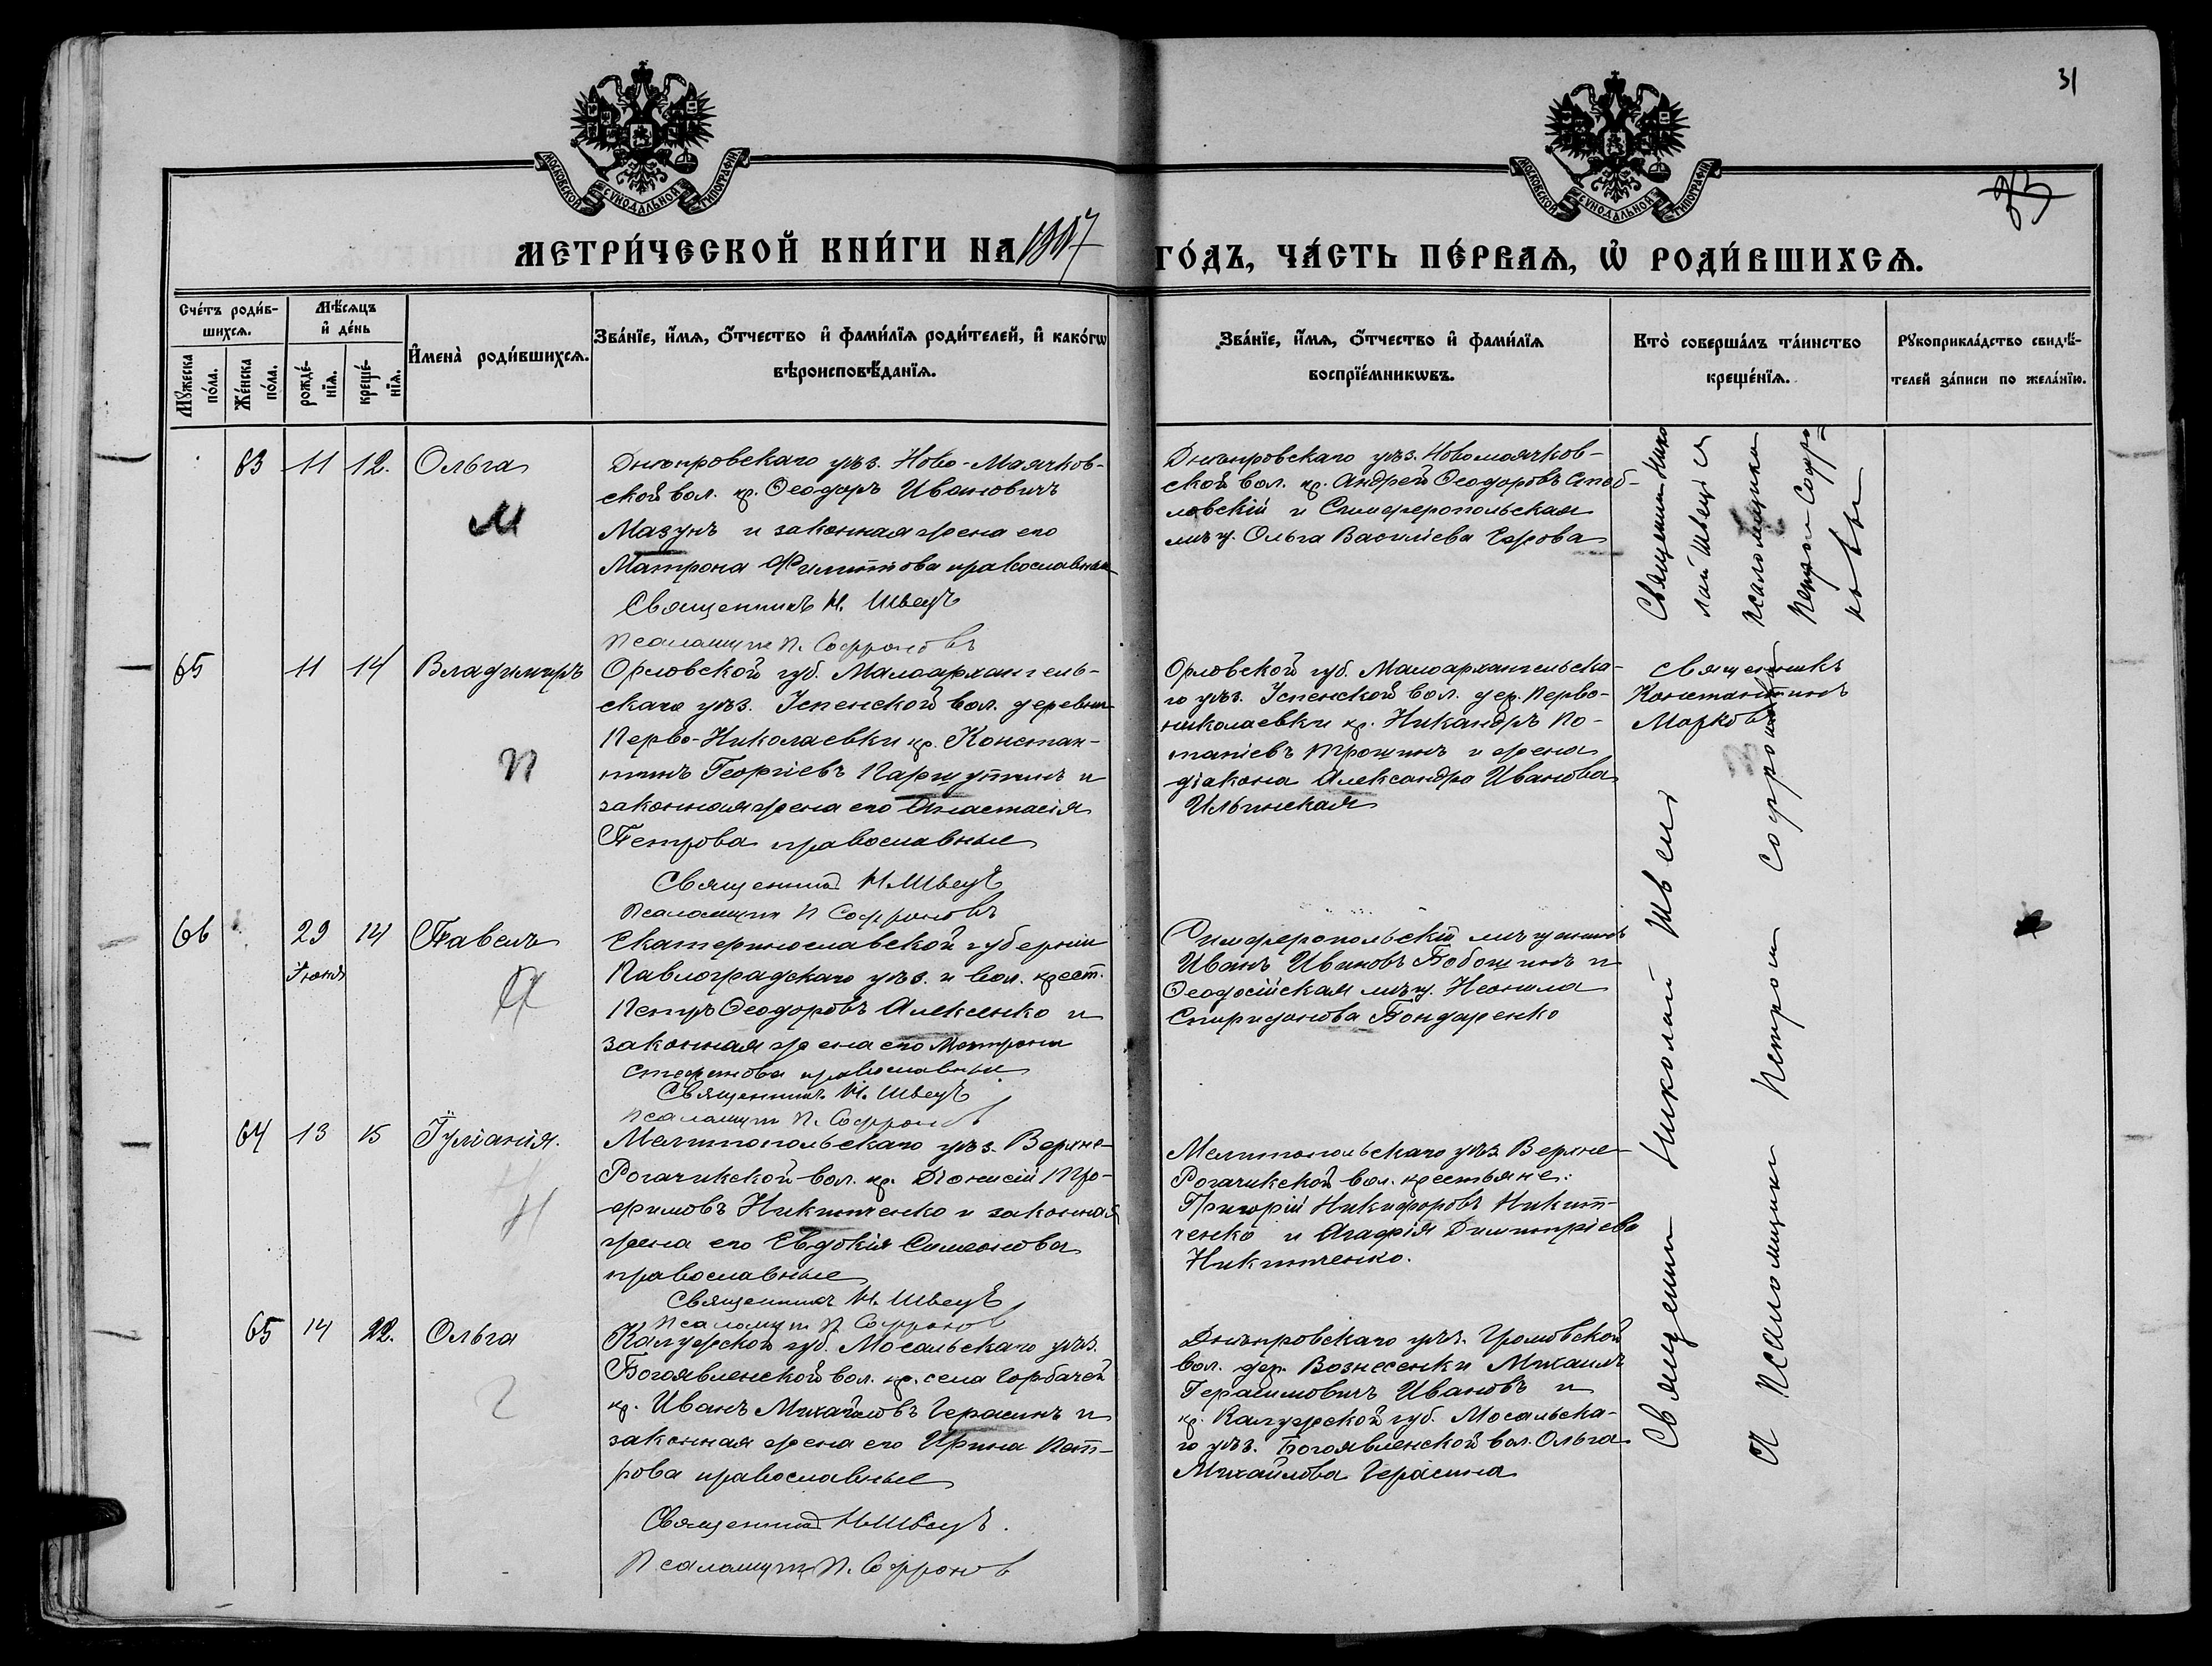 31
МОСКОВСКОЙ СѴНОДАЛЬНОЙ ТИПОГРАФІИ
МОСКОВСКОЙ СѴНОДАЛЬНОЙ ТИПОГРАФІИ
МЕТРИ́ЧЕСКОЙ КНИ́ГИ НА
ГО́ДЪ, ЧА́СТЬ ПЕ́РВАѦ, Ѡ҆ РОДИ́ВШИХСѦ.
Сче́тъ роди́в-
шихсѧ.
Мꙋ́жеска
по́ла.
Же́нска
по́ла.
Мѣ́сѧцъ
и҆ де́нь
рожде́-
нїѧ.
креще́-
нїѧ.
И҆мена̀ роди́вшихсѧ.
Зва́нїе, и҆́мѧ, ѻ҆́тчество и҆ фами́лїѧ роди́телей, и҆ како́гѡ
вѣроисповѣ́данїѧ.
Зва́нїе, и҆́мѧ, ѻ҆́тчество и҆ фами́лїѧ
воспрїе́мникѡвъ.
Кто̀ соверша́лъ та́инство
креще́нїѧ.
Рꙋкоприкла́дство свидѣ́-
телей за́писи по жела́нїю.
83 11 12. Ольга
М
Днѣпровскаго уѣз. Ново-Маячков-
ской вол. кр. Ѳеодоръ Ивановичъ
Мазунъ и законная жена его
Матрона Филиппова православные
Священникъ Н. Швецъ
Псаломщик П. Софроновъ
Днѣпровскаго уѣз. Новомаячков-
ской вол. кр. Андрей Ѳеодоровъ
и Симферопольская
мѣщ. Ольга Василіева
Священник Нико
лай Швец и
псаломщик
Петр Софро
новъ
65 11 14 Владимиръ
П
Орловской губ. Малоархангель-
скаго уѣз. Успенской вол. деревни
Перво-Николаевки кр. Констан-
тинъ Георгіевъ Паршутинъ и
законная жена его Анастасія
Петрова православные
Священник Н. Швецъ
Псаломщик П Софроновъ
Орловской губ. Малоархангельска-
го уѣз. Успенской вол. дер. Перво-
николаевки кр. Никандръ По-
тапіевъ Трошинъ и жена
діакона Александра Иванова
Ильинская
Священникъ
Константинъ
Марковъ
66 29 14 Павелъ
Іюня
А
Екатеринославской губерніи
Павлоградскаго уѣз. и вол. крест.
Петръ Ѳеодоровъ Алексенко и
законная жена его Матрона
Стефанова православные
Священник Н. Швецъ
Псаломщик П. Софронов
Симферопольскій мѣщанинъ
Иванъ Ивановъ Бобошинъ и
Ѳеодосійская мѣщ. Неонила
Спиридонова Бондаренко
64 13 15 Іуліанія.
Н
Мелитопольскаго уѣз. Верхне-
Рогачикской вол. кр. Діонисій Тро-
фимовъ Никитченко и законная
жена его Евдокія Симеонова
православные
Священник Н. Швецъ
Псаломщик П. Софронов
Мелитопольскаго уѣз. Верхне-
Рогачикской вол. крестьяне:
Григорій Никифоровъ Никит-
ченко и Агафія Димитріева
Никитченко.
65 14 22. Ольга
Г
Калужской губ. Мосальскаго уѣз.
Богоявленской вол. кр. села Горбачей
кр. Иванъ Михайловъ Герасинъ и
законная жена его Ирина Пет-
рова православные
Священник Н Швецъ.
Псаломщик П. Софронов
Днѣпровскаго уѣз. Громовской
вол. дер. Вознесенки Михаилъ
Герасимовичъ Ивановъ и
кр. Калужской губ. Мосальска-
го уѣз. Богоявленской вол. Ольга
Михайлова Герасина
Священник Николай Швец
и Псаломщик Петр Софронов